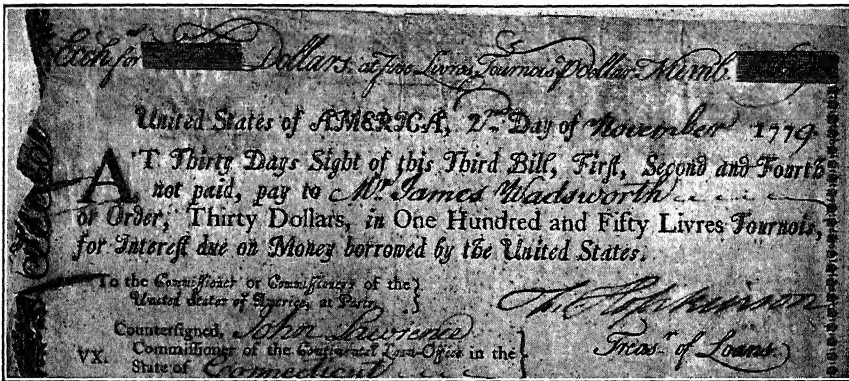 Exchᵃ for Dollars, at Five Livres Tournois ⅌ Dollar. Numb.
United States of AMERICA, 2ᵈ Day of November 1779
AT Thirty Days Sight of this Third Bill, First, Second and Fourth
not paid, pay to Mʳ James Wadsworth
or Order, Thirty Dollars, in One Hundred and Fifty Livres Tournois,
for Interest due on Money borrowed by the United States.
To the Commissioner or Commissioners of the
United States of America, at Paris.
Countersigned, John Lawrence
VX. Commissioner of the Continental Loan-Office in the
State of Connecticut
Hopkinson
Treasʳ of Loans.